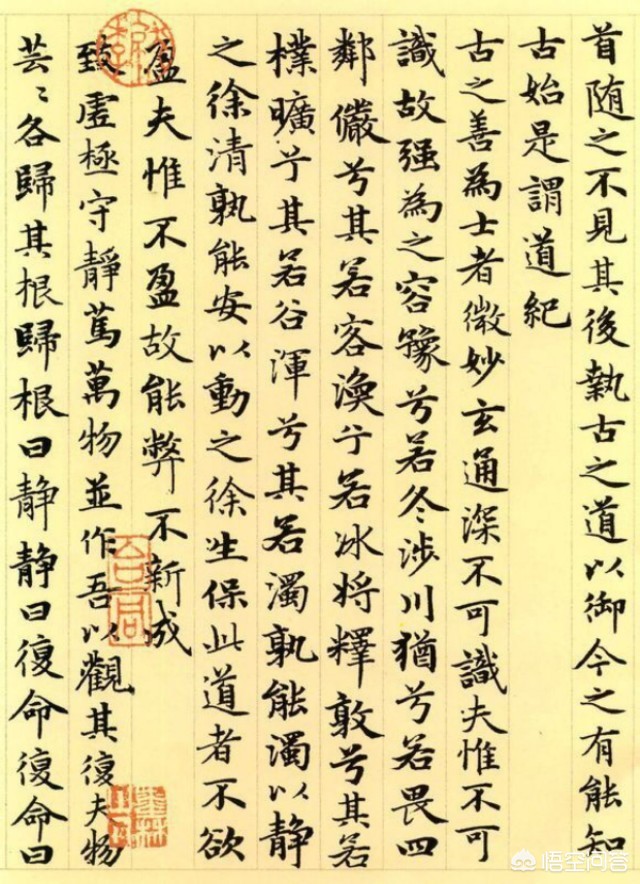 首随之不見其後執古之道以御今之有能知
古始是謂道紀
古之善為士者微妙玄通深不可識夫惟不可
識故强為之容豫兮若冬涉川猶兮若畏四
鄰儼兮其若客渙兮若冰将釋敦兮其若
樸曠兮其若谷渾兮其若濁孰能濁以静
之徐清孰能安以動之徐生保此道者不欲
盈夫惟不盈故能弊不新成
致虛極守靜篤萬物並作吾以觀其復夫物
芸〻各歸其根歸根曰静静曰復命復命曰
合同
悟空问答